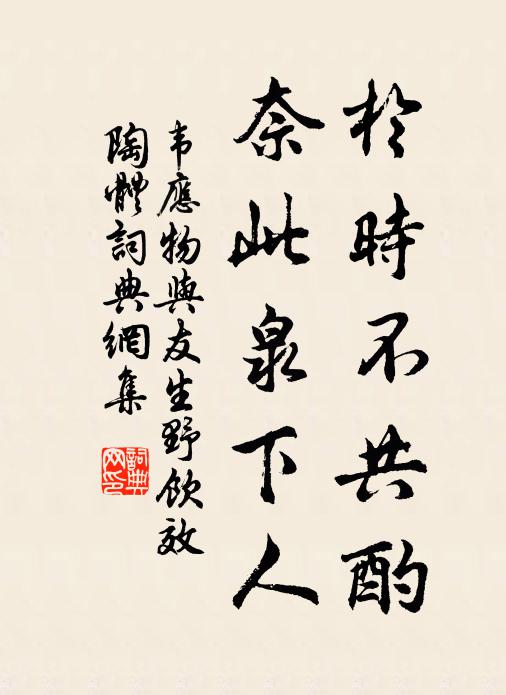 於時不共酌
奈此泉下人
韦應物與友生野飲效
陶體詞典網集
詞典
网印